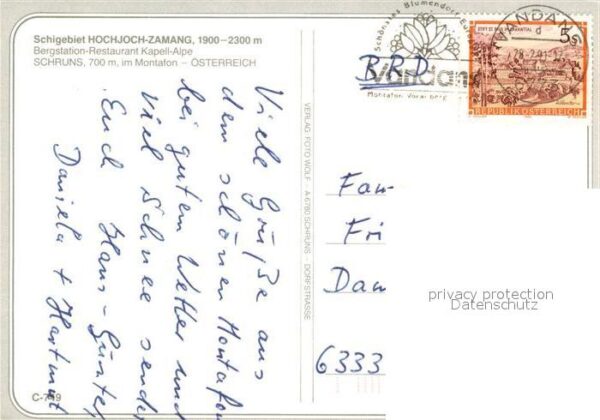 Schigebiet HOCHJOCH-ZAMANG, 1900–2300 m
Bergstation-Restaurant Kapell-Alpe
SCHRUNS, 700 m, im Montafon – ÖSTERREICH
Viele Grüße aus
dem schönen Montafon
bei gutem Wetter und
viel Schnee senden
Euch Hans-Günter
Daniela + Hartmut
C-749
VERLAG FOTO WOLF A 6780 SCHRUNS DORFSTRASSE
Schönstes Blumendorf Euro
Vandans
Montafon Vorarlberg
BRD
VANDANS
5 S
STIFT ST. PAUL IM LAVANTTAL
REPUBLIK ÖSTERREICH
Fam
Fri
Dam
6333
privacy protection
Datenschutz